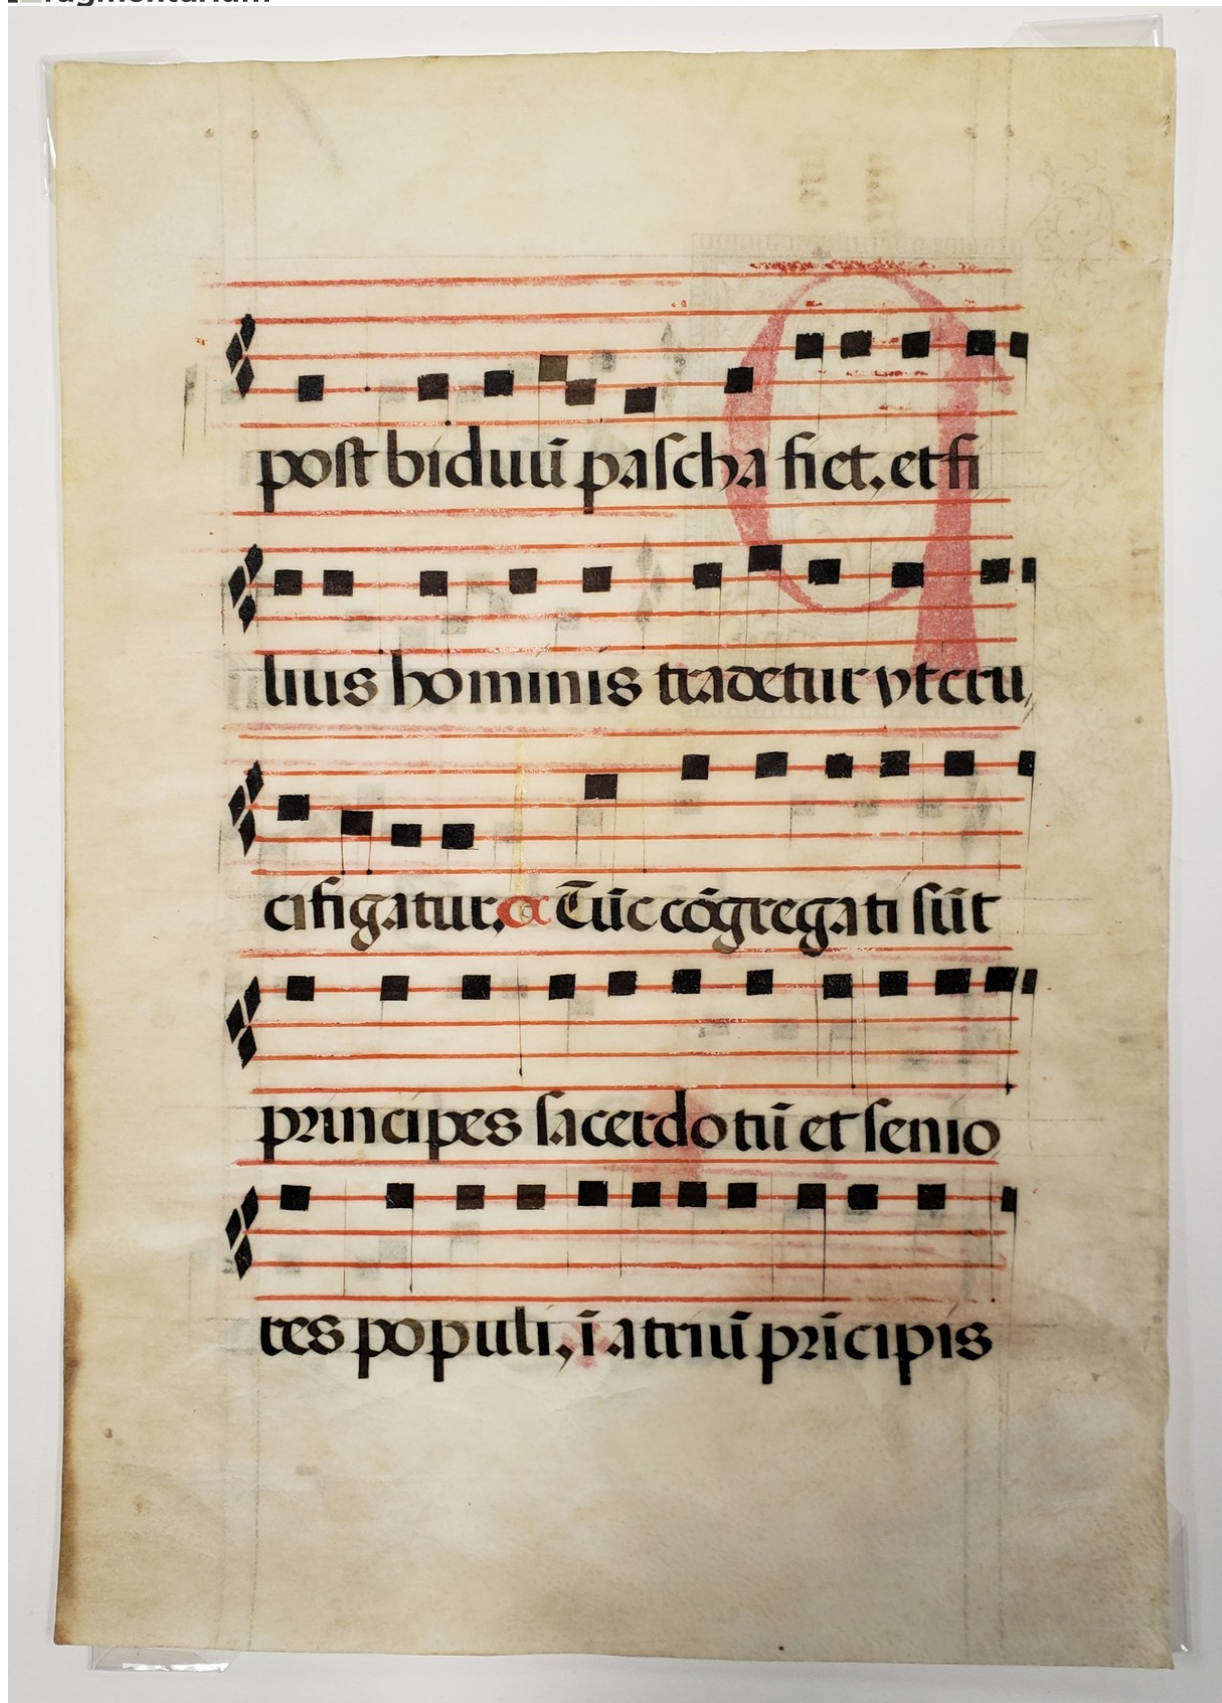 post biduū pascha fiet, et fi
lius hominis tradetur vt cru,
cifigatur, c Tūc cōgregati sūt
principes sacerdotū et senio
res populi, ī atriū prīcipis